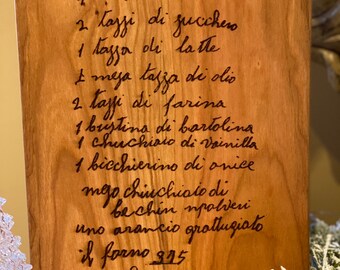 2 tazzi di zucchero
1 tazza di latte
1 mega tazza di olio
2 tazzi di farina
1 bustina di bartolina
1 chuchiaio di vainilla
1 bicchierino di anice
mego chiuchiaio di
bachin npolveri
uno arancio grattugiato
il forno 375